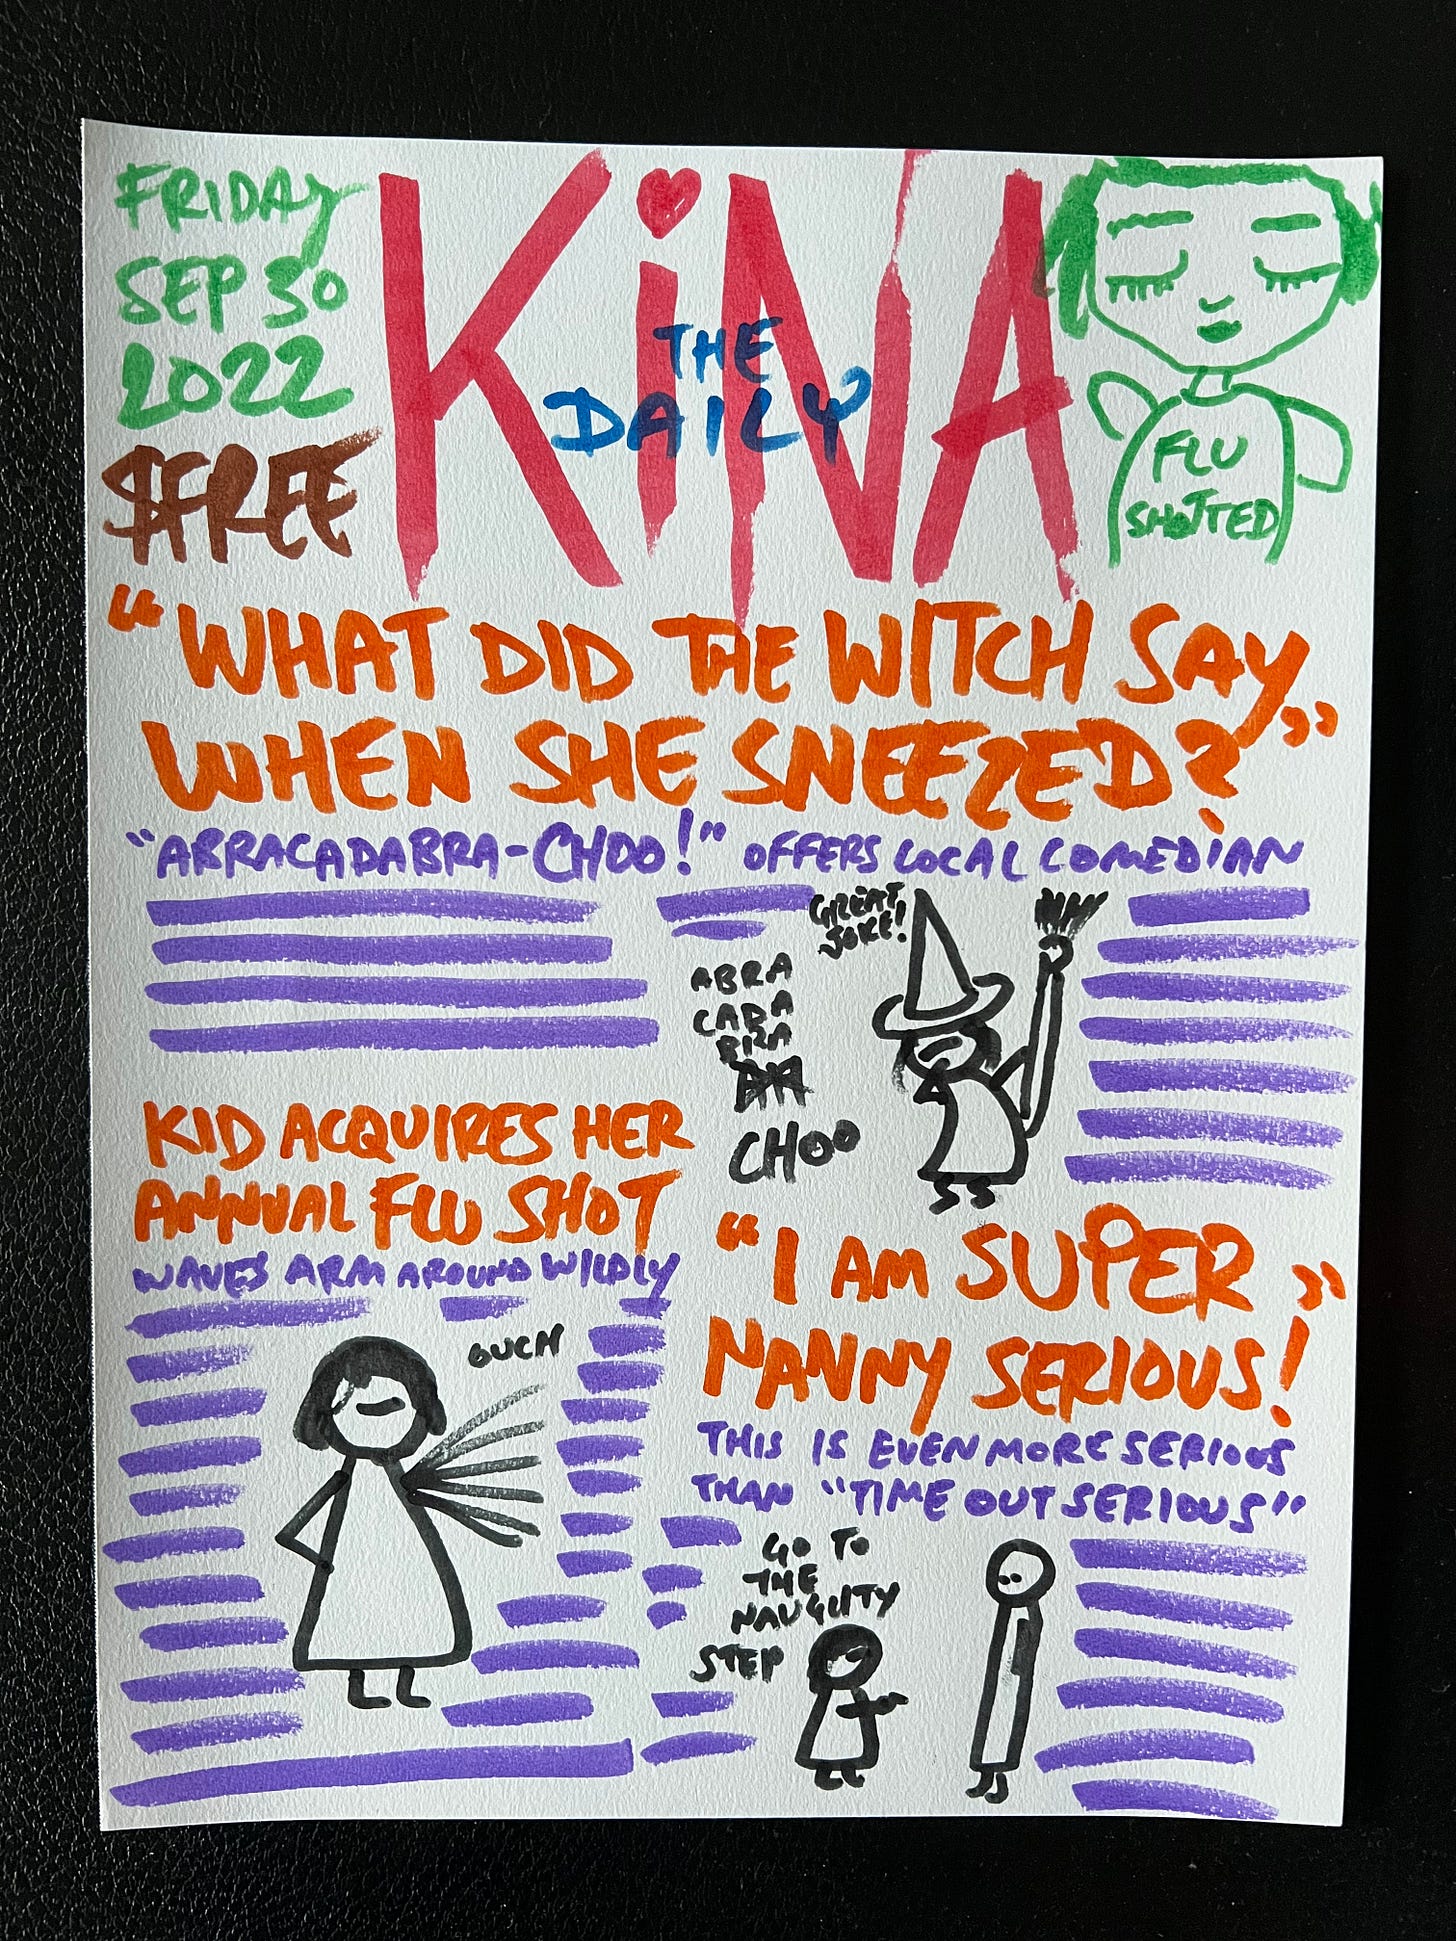 FRIDAY
SEP 30
2022
$FREE
THE
DAILY
KiNA
FLU
SHOTTED
"WHAT DID THE WITCH SAY
WHEN SHE SNEEZED?"
"ABRACADABRA-CHOO!" OFFERS LOCAL COMEDIAN
GREAT
JOKE!
ABRA
CADA
BRA
CHOO
KID ACQUIRES HER
ANNUAL FLU SHOT
WAVES ARM AROUND WILDLY
OUCH
"I AM SUPER
NANNY SERIOUS!"
THIS IS EVEN MORE SERIOUS
THAN "TIME OUT SERIOUS"
GO TO
THE
NAUGHTY
STEP